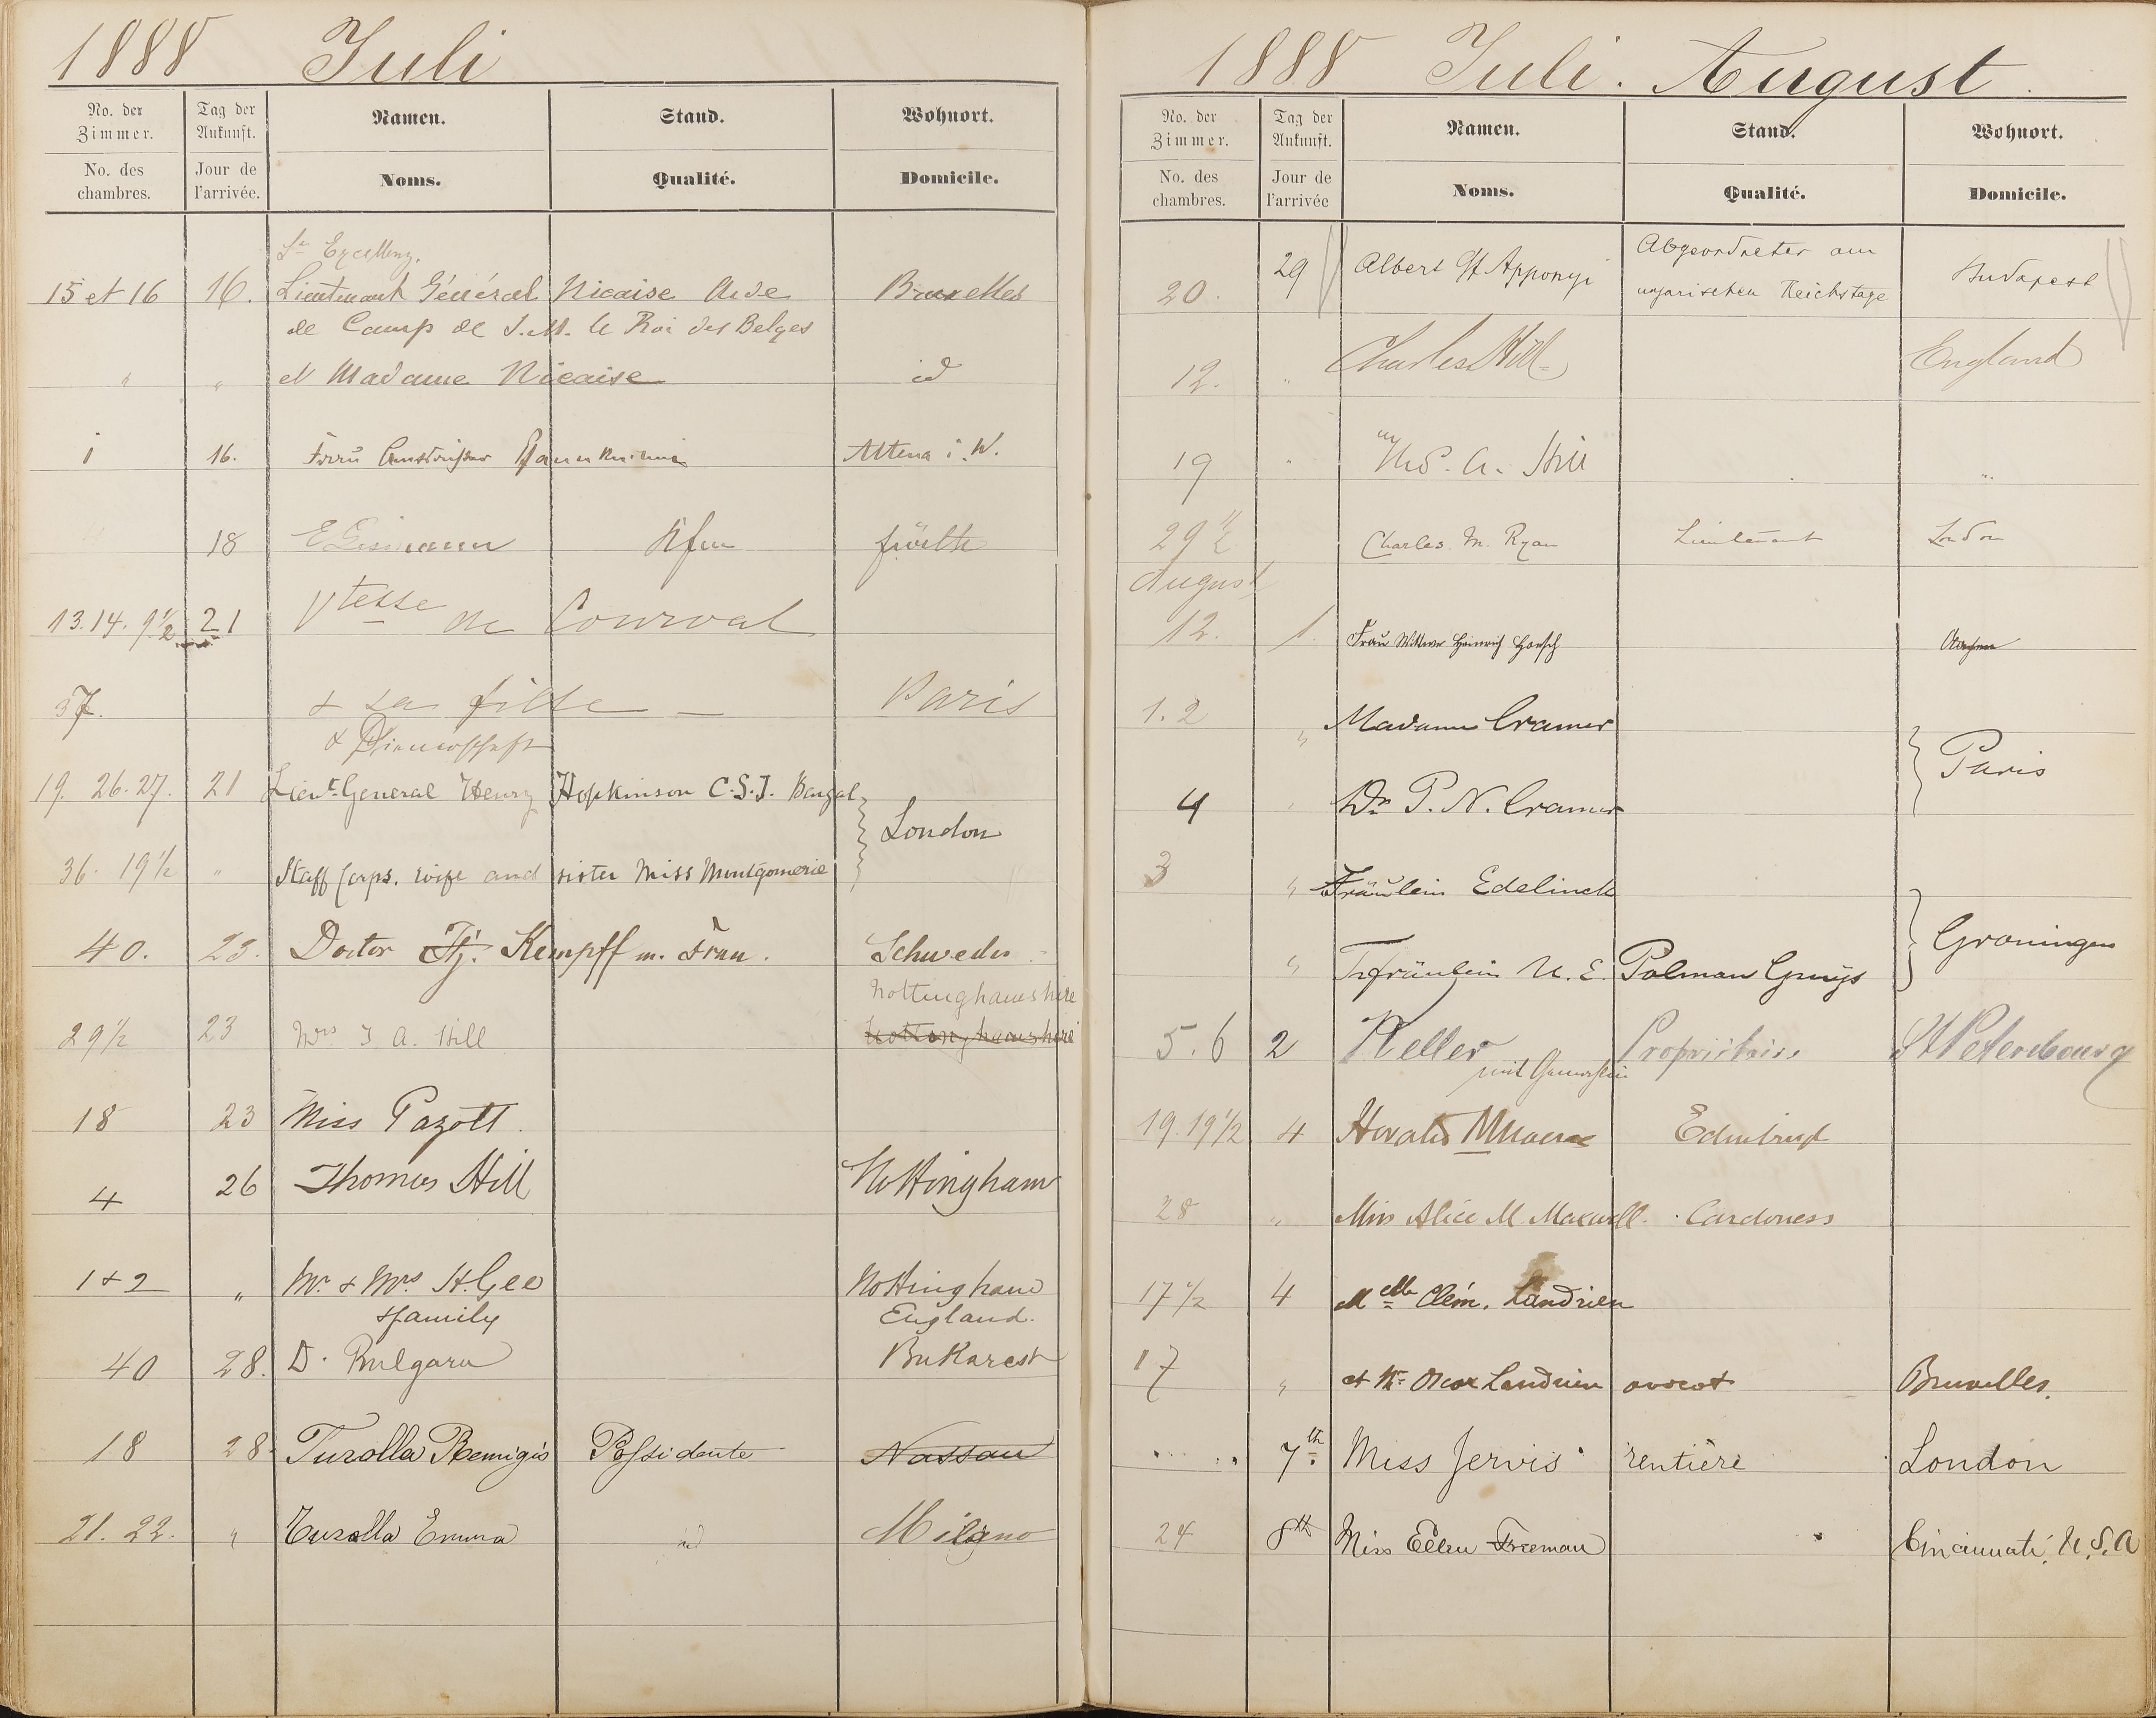 1888 Juli
No. der Zimmer. Tag der Ankunft. Namen. Stand. Wohnort.
No. des chambres. Jour de l'arrivée. Noms. Qualité. Domicile.
Sr Excellenz.
15 et 16 16. Lieutenant Général Nicaise Aide Bruxelles
de Camp de S. M. le Roi des Belges
" " et Madame Nicaise id
1 16. Frau Amtsrichter Altena i. W.
18 Kfm
13. 14. 9 1/2 21 Vtesse de Courval
37. & sa fille — Paris
& Dienerschaft
19. 26. 27. 21 Lieut. General Henry Hopkinson C.S.I. Bengal
London
36. 19 1/2 " Staff Corps. wife and sister Miss Montgomerie
40. 23. Doctor Hj. Kempff m. Frau. Schweden
Nottinghamshire
29 1/2 23 Mrs T. A. Hill Nottinghamshire
18 23 Miss Pazott.
4 26 Thomas Hill Nottingham
1 & 2 " Mr. & Mrs. H. Gee Nottingham
& family England.
40 28. D. Bulgaru Bukarest
18 28. Turolla Remigio Possidente Nassau
21. 22. " Turolla Emma id Milano
1888 Juli. August.
No. der Zimmer. Tag der Ankunft. Namen. Stand. Wohnort.
No. des chambres. Jour de l'arrivée Noms. Qualité. Domicile.
20. 29 Albert Gf Apponyi Abgeordneter am ungarischen Reichstage Budapest
12. " Charles Hill England
19 " A. Hill "
29 1/2 Charles M. Ryan Lieutenant London
August
12. 1. Frau Wittwe Heinrich Hoesch Aachen
1. 2 " Madame Cramer
Paris
4 " Dr P. N. Cramer
3 " Fräulein Edelinck
Groningen
" Fräulein U. E. Polman Gruys
5. 6 2 Keller Propriétaire St Petersbourg
mit Gemahlin
19. 19 1/2 4 Edinburgh
28 " Miss Alice M. Maxwell. Cardoness
17 1/2 4 Melle Clém. Landrien
17 " et Mr Oscar Landrien avocat Bruxelles.
7th Miss Jervis rentière London
24 8th Miss Ellen Freeman Cincinnati, U.S.A